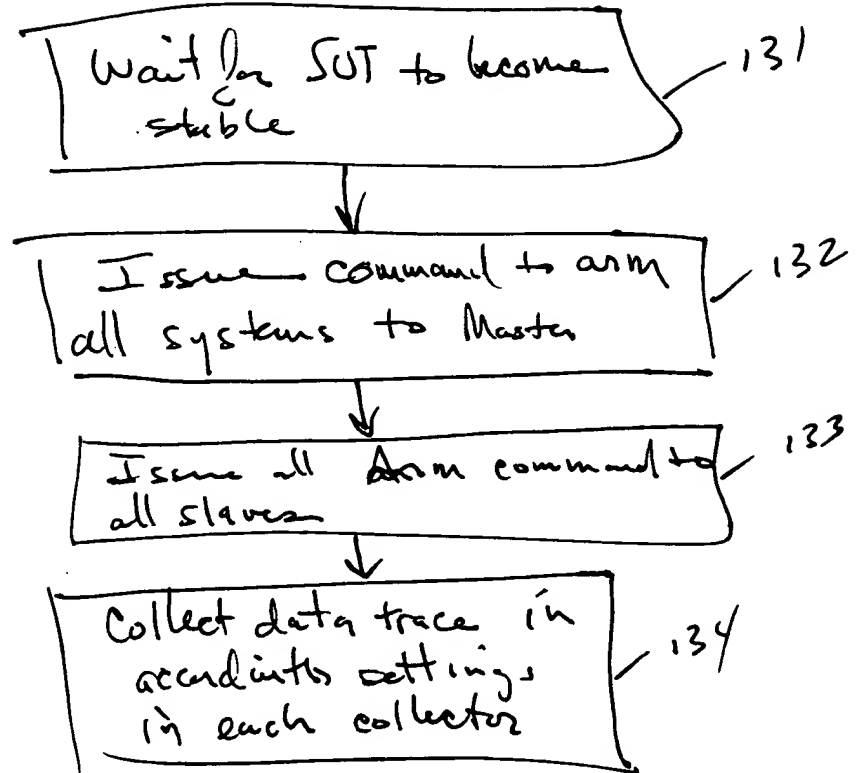 Wait for SUT to become
stable
131
Issue command to arm
all systems to Master
132
Issue all Arm command to
all slaves
133
Collect data trace in
settings
in each collector
134